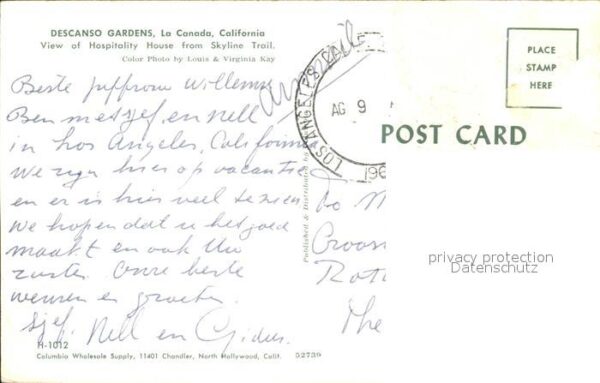 DESCANSO GARDENS, La Canada, California
View of Hospitality House from Skyline Trail.
(Color Photo by Louis & Virginia Kay
Beste juffrouw Willemse
Ben met sjef en nell
in Los Angeles, California
we zyn hier op vacantie
en er is hier veel te zien
We hopen dat u het goed
maakt en ook Uw
zuster. Onze beste
wensen en groeten
Sjef. Nell en
H-1012
Columbia Wholesale Supply, 11401 Chandler, North Hollywood, Calif. 52739
Published & Distributed by
LOS ANGELES, CA
AG 9
196
PLACE
STAMP
HERE
POST CARD
To M
Croos
Rot
The
privacy protection
Datenschutz